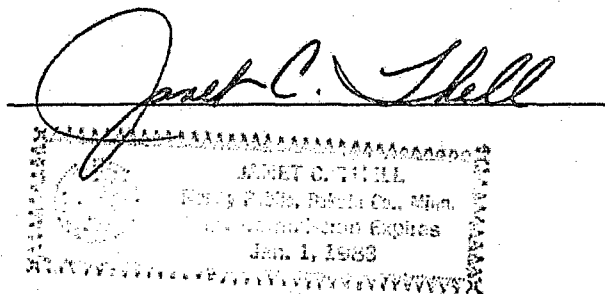 Janet C. Thill
JANET C. THILL
Notary Public, Dakota Co., Minn.
Commission Expires
Jan. 1, 1983